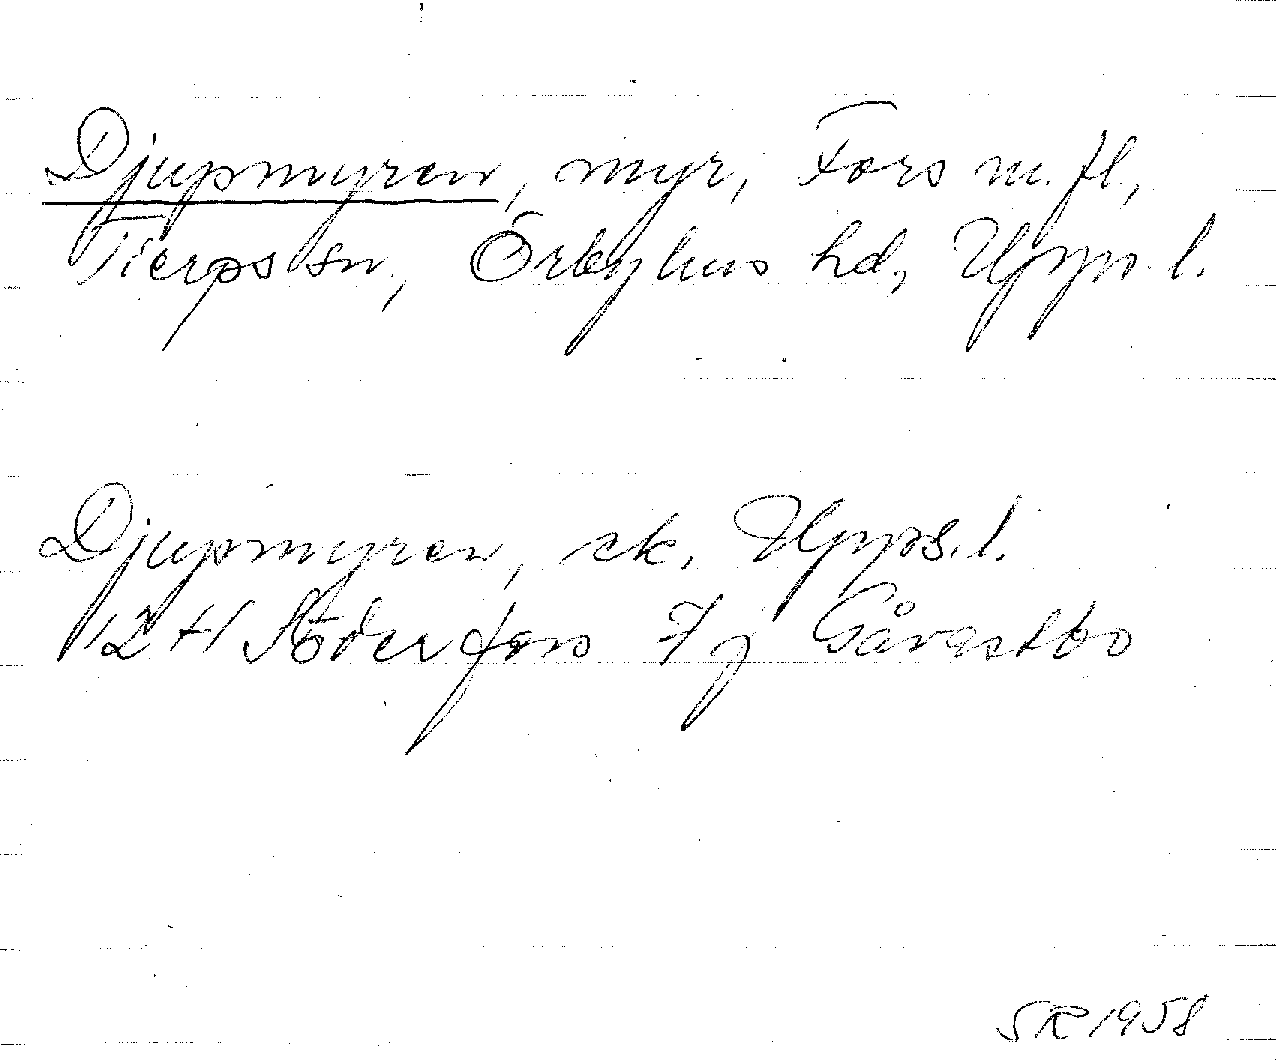 Djupmyren, myr, Fors m.fl.,
Tierps sn, Örbyhus hd, Upps. l.
Djupmyren, ek. Upps. l.
12 H Söderfors 7 j Gåvastbo
SR 1958